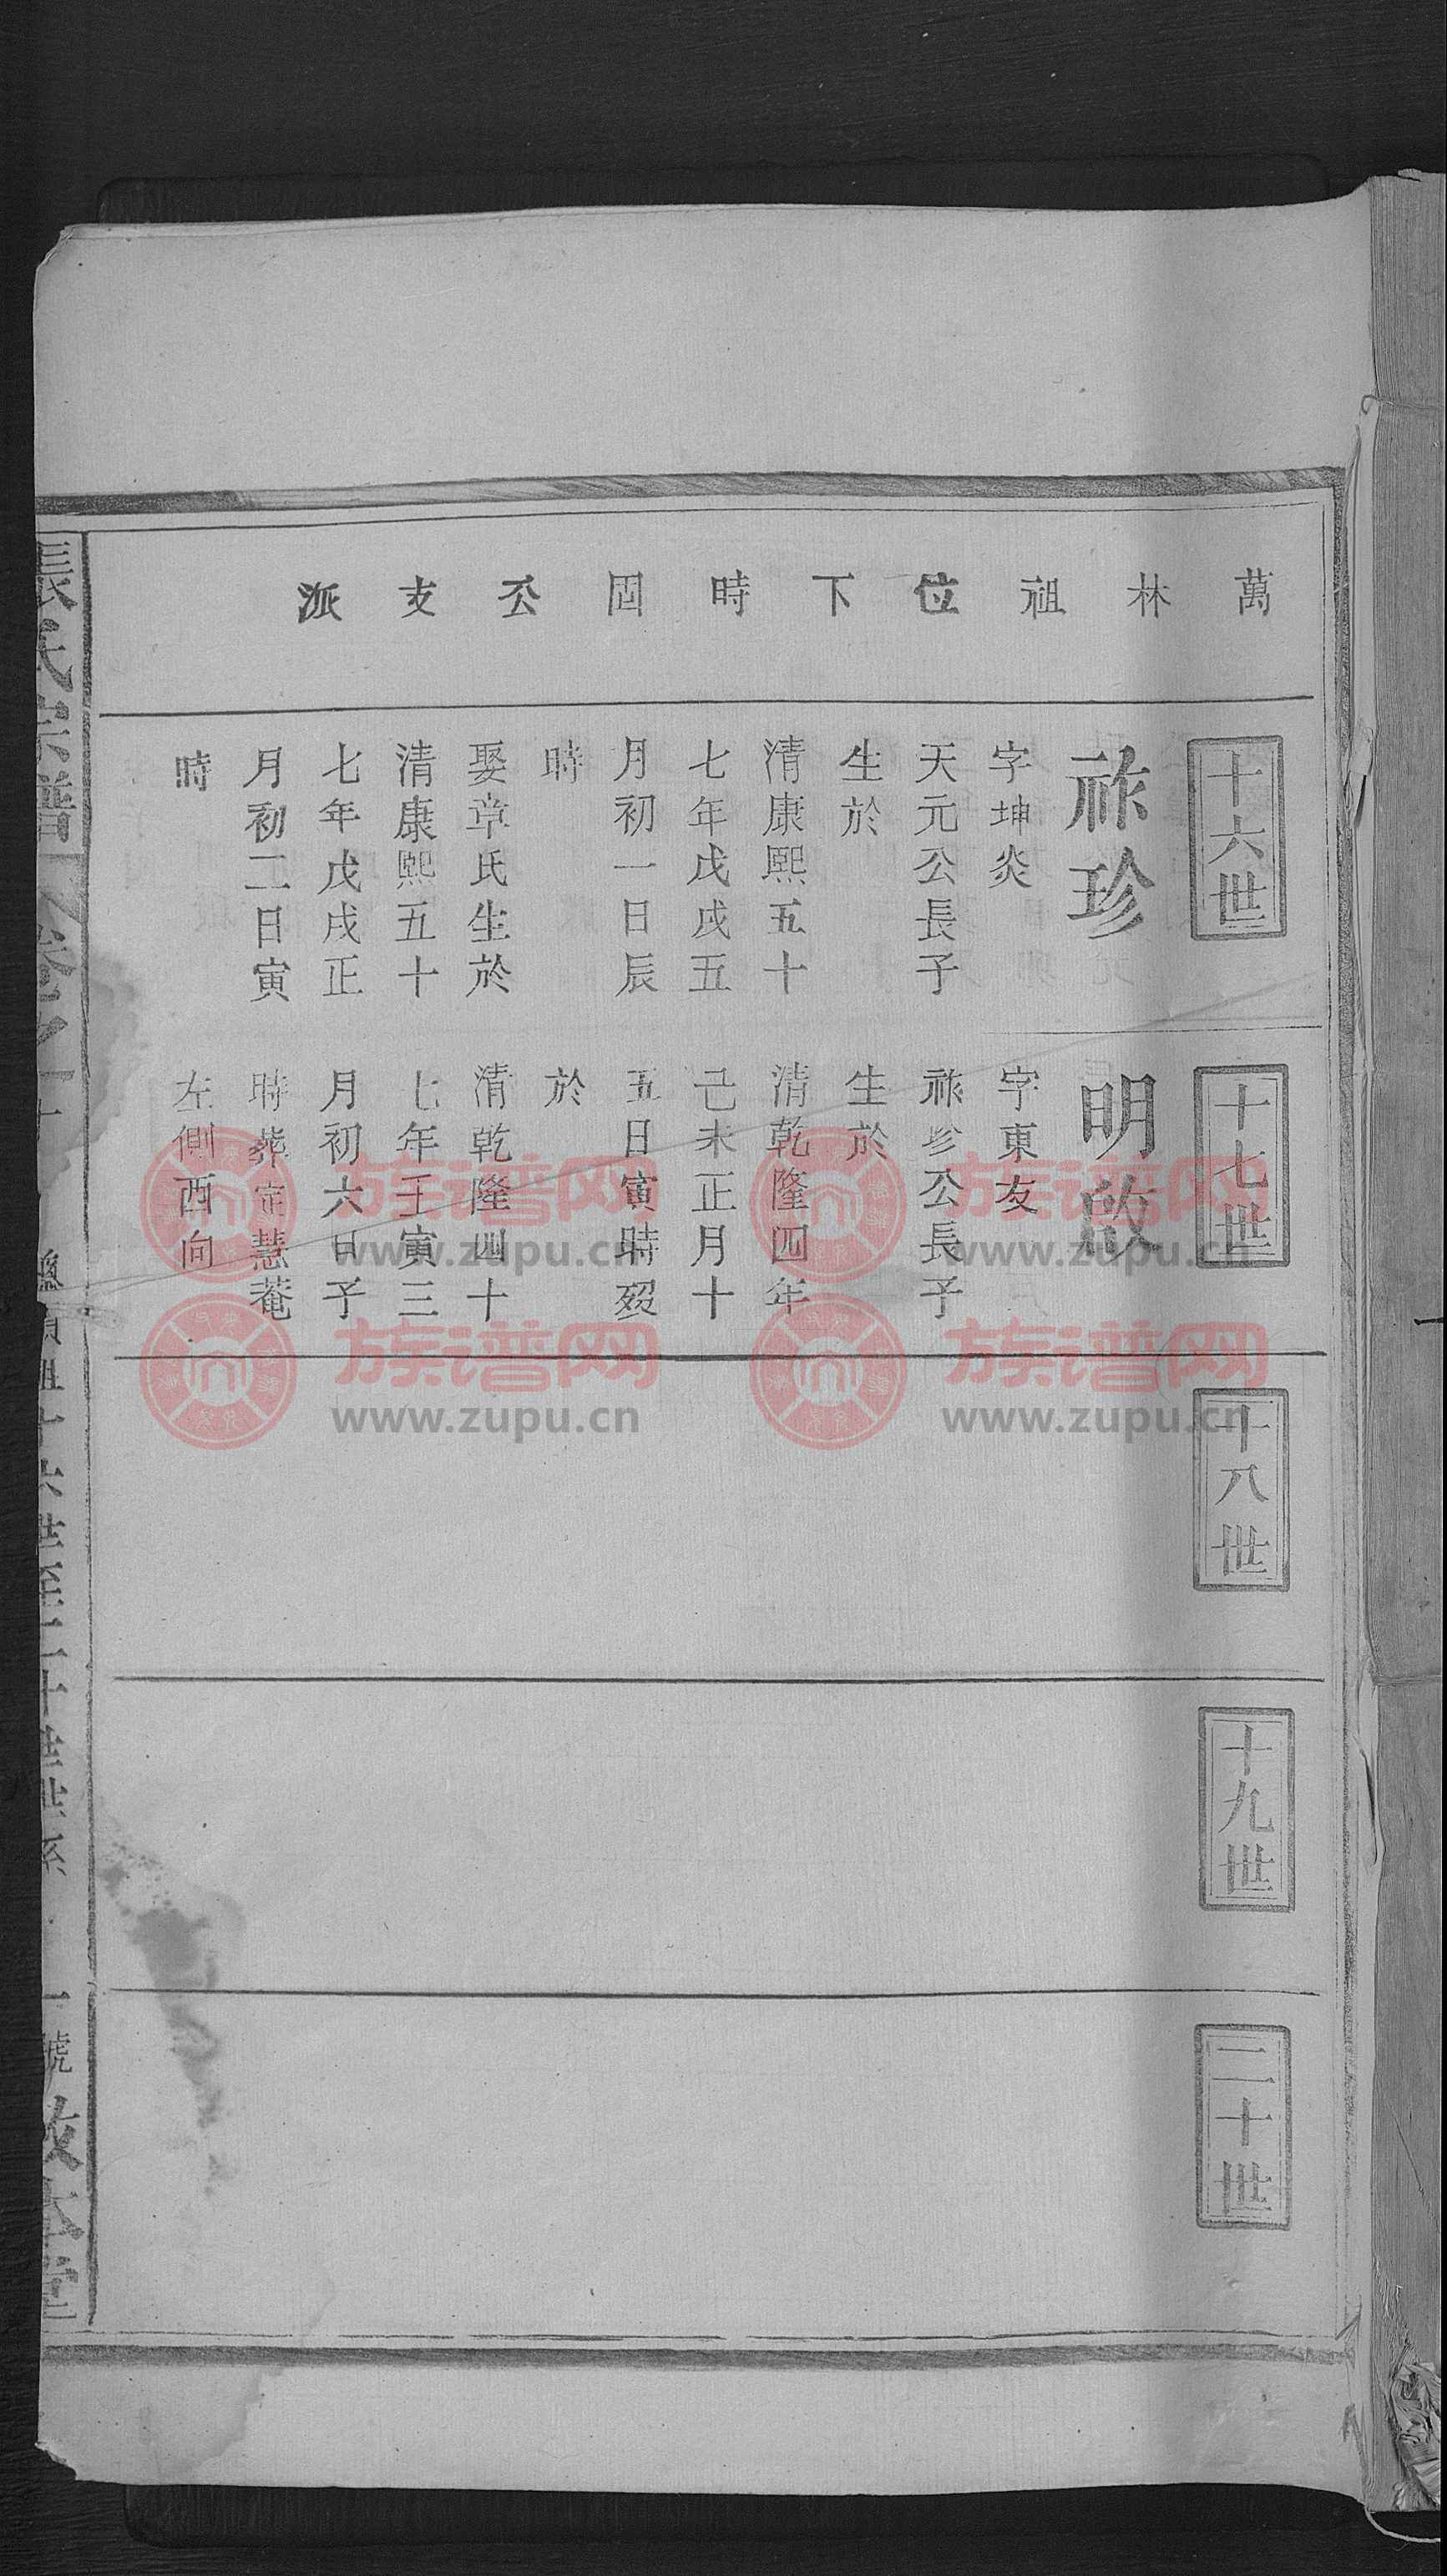 萬林祖位下時囸公支派
十六世
祚珍
字坤炎
天元公長子
生於
清康熙五十
七年戊戌五
月初一日辰
時
娶章氏生於
清康熙五十
七年戊戌正
月初二日寅
時
十七世
明啟
字東友
祚珍公長子
生於
清乾隆四年
己未正月十
五日寅時歿
於
清乾隆四十
七年壬寅三
月初六日子
時葬定慧菴
左側西向
十八世
十九世
二十世
張氏宗譜
卷之一
祖十六世至二十世世系
一號
敦本堂
族谱网
www.zupu.cn
族谱网
www.zupu.cn
族谱网
www.zupu.cn
族谱网
www.zupu.cn